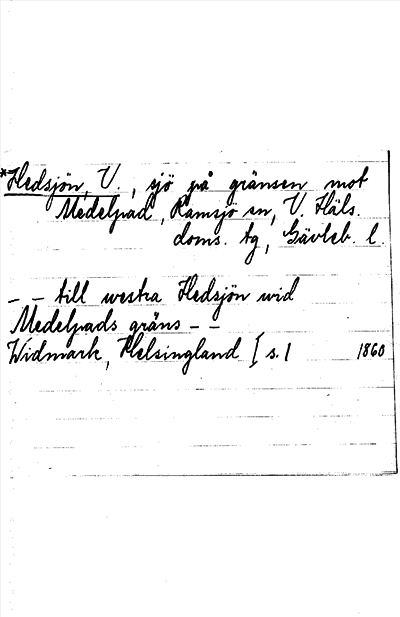 *Hedsjön, V., sjö på gränsen mot
Medelpad, Ramsjö sn, V. Häls.
doms. tg, Gävleb. l.
- - till westra Hedsjön wid
Medelpads gräns - -
Widmark, Helsingland I s. 1 1860